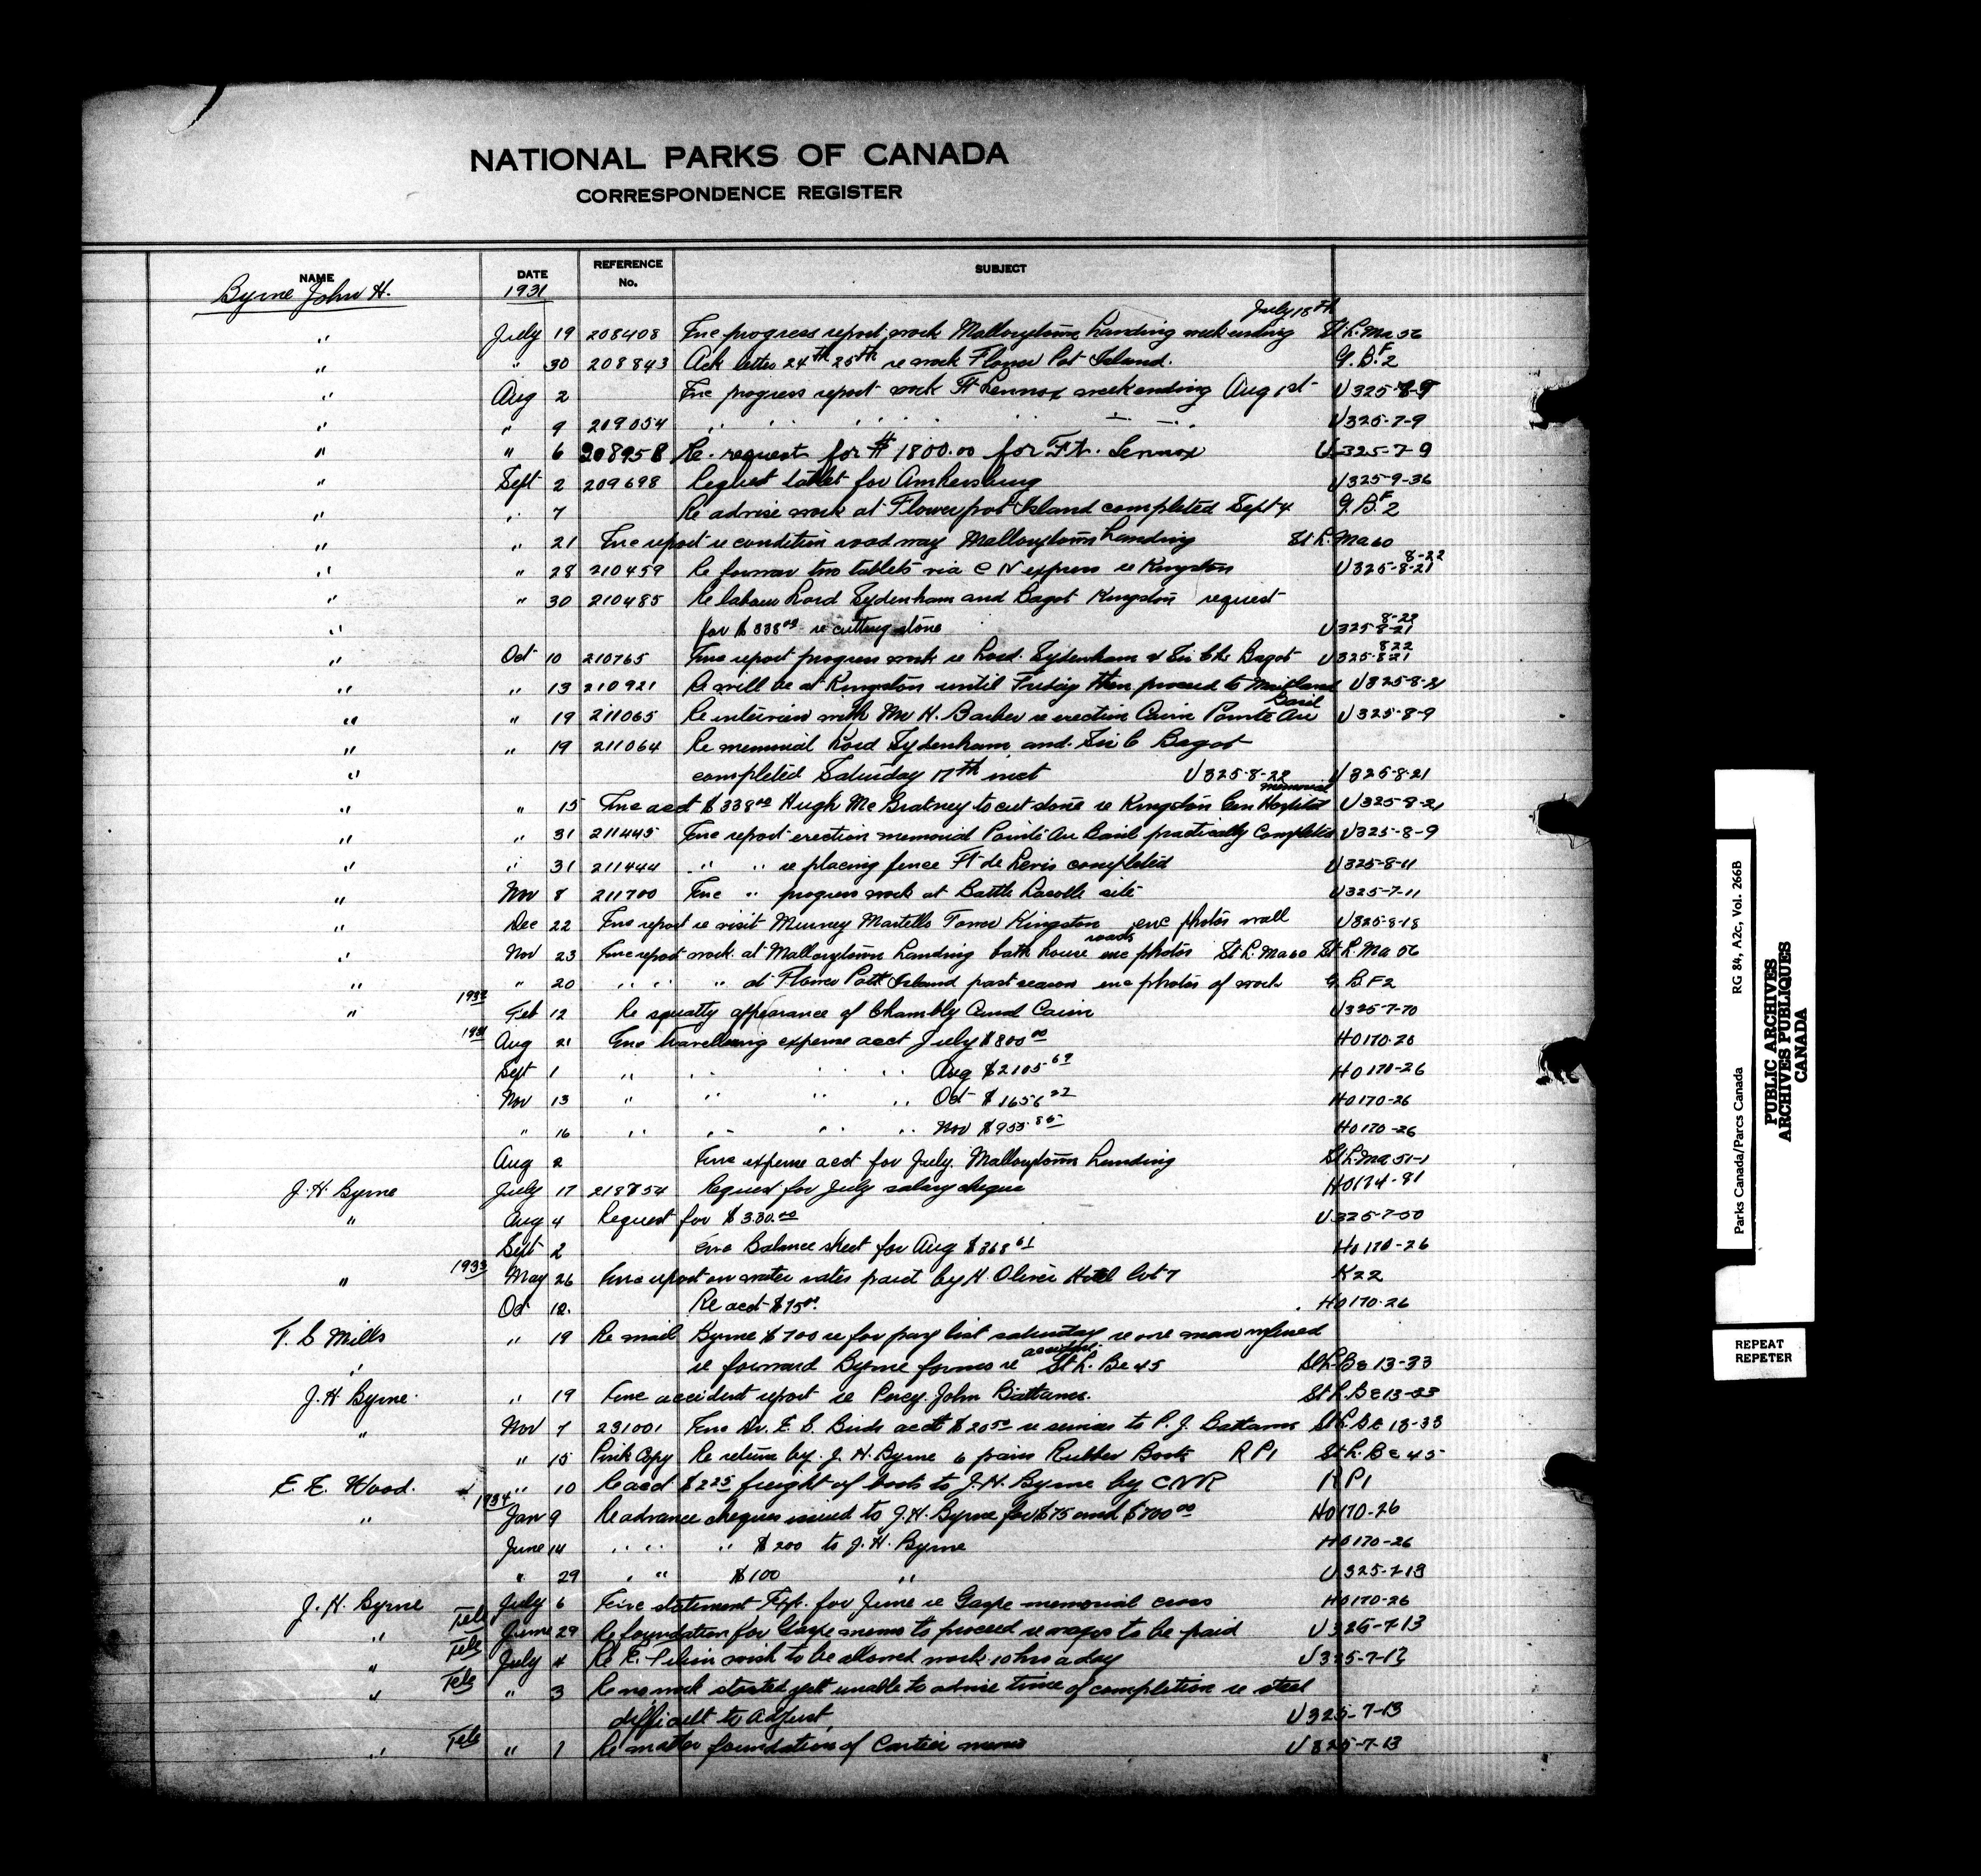 NATIONAL PARKS OF CANADA
CORRESPONDENCE REGISTER
NAME DATE REFERENCE No. SUBJECT
Byrne John H. 1931
July 18th
" July 19 208408 Enc progress report work Mallorytown Landing week ending St L. Ma 56
" " 30 208843 Ack letter 24th 25th re work Flower Pot Island. G.B.F2
" Aug 2 Enc progress report work Ft Lennox week ending Aug 1st U325-7-9
" " 9 209054 " " " " " U325-7-9
" " 6 208958 Re. request for $1800.00 for Ft. Lennox U325-7-9
" Sept 2 209698 Request tablet for Amherstburg U325-9-36
" " 7 Re advise work at Flowerpot Island completed Sept 4 G.B.F2
" " 21 Enc report re condition roadway Mallorytown Landing St L. Ma 60
" " 28 210459 Re forwar two tablets via CN express re Kingston U325-8-21 8-22
" " 30 210485 Re labour Lord Sydenham and Bagot Kingston request
" for $338.00 re cutting stone U325-8-21 8-22
" Oct 10 210765 Enc report progress work re Lord. Sydenham & Sir Ch. Bagot U325-8-21 822
" " 13 210921 Re will be at Kingston until Friday then proceed to Maitland U325-8-21
" " 19 211065 Re interview with Mr H. Barber re erection Cairn Pointe Au Baril U325-8-9
" " 19 211064 Re memorial Lord Sydenham and Sir C Bagot
" completed Saturday 17th inst U325-8-22 U325-8-21
" " 15 Enc acct $338.00 Hugh McBratney to cut stone re Kingston Gen Hospital memorial U325-8-21
" " 31 211445 Enc report erection memorial Pointe Au Baril practically completed U325-8-9
" " 31 211444 " " re placing fence Ft de Levis completed U325-8-11
" Nov 8 211700 Enc " progress work at Battle Lacolle site U325-7-11
" Dec 22 Enc report re visit Murney Martello Tower Kingston enc photos wall U325-8-18
" Nov 23 Enc report work at Mallorytown Landing bath house roads enc photos St L. Ma 60 St L. Ma 56
" " 20 " " " at Flower Pott Island past season enc photos of work G B F2
" 1932 Feb 12 Re squatty appearance of Chambly Canal Cairn U325-7-70
1931 Aug 21 Enc travelling expense acct July $800.00 H0170-26
Sept 1 " " " " Aug $2105.69 H0170-26
Nov 13 " " " " Oct $1656.27 H0170-26
" 16 " " " " Nov $955.85 H0170-26
Aug 2 Enc expense acct for July. Mallorytown Landing St L. Ma 51-1
J. H. Byrne July 17 218854 Request for July salary cheque H0174-91
" Aug 4 Request for $330.00 U325-7-50
Sept 2 Enc Balance sheet for Aug $368.61 H0170-26
" 1933 May 26 Enc report on water rates paid by H. Oliver Hotel Lot 7 K22
Oct 12. Re acct $75.00. H0170-26
F. C Mills " 19 Re mail Byrne $700 re for pay list saturday re one man injured
" re forward Byrne formes re accident. St L. Be 45 St L. Be 13-33
J. H Byrne. " 19 Enc accident report re Percy John Battams. St L. Be 13-33
" Nov 7 231001 Enc Dr. E. S. Birds acct $20.50 re services to P. J. Battams St L. Be 13-33
" 15 Pink Copy Re return by. J. H. Byrne 6 pairs Rubber Boots R P1 St L. Be 45
E. E. Wood. " 10 Re acct $2.25 freight of boots to J. H. Byrne by CNR R P1
" 1934 Jan 9 Re advance cheques issued to J. H. Byrne for $75 and $700.00 H0170-26
June 14 " " " $200 to J. H. Byrne H0170-26
" 29 " " $100 " U325-7-13
J. H. Byrne July 6 Enc statement Exp. for June re Gaspe memorial cross H0170-26
" Tele June 29 Re foundation for Gaspe memo to proceed re wages to be paid U325-7-13
" Tele July 4 Re E. wish to be allowed work 10 hrs a day U325-7-13
" Tele " 3 Re no work started yett unable to advise time of completion re steel
difficult to adjust U325-7-13
" Tele " 1 Re matter foundation of Cartier memo U325-7-13
Parks Canada/Parcs Canada RG 84, A2c, Vol. 266B
PUBLIC ARCHIVES
ARCHIVES PUBLIQUES
CANADA
REPEAT
REPETER